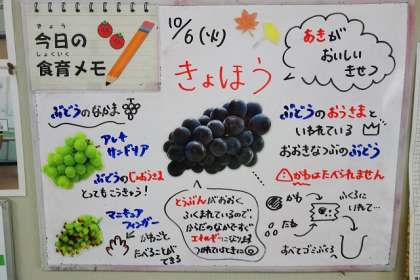 きょう
今日の
しょくいく
食育メモ
10/6(火)
きょほう
あきが
おいしい
きせつ
ぶどうのなかま
アレキ
サンドリア
ぶどうのじょおうさま
とってもこうきゅう!
マニキュア
フィンガー
かわごと
たべることが
できる
とうぶんがおおく
ふくまれているので、
からだのなかですぐ
エネルギーになります
つかれているときに
ぶどうのおうさまと
いわれている
おおきなつぶのぶどう
かわはたべれません
かわ
たね
ふくろに
いれて…
すべてゴミぶくろ